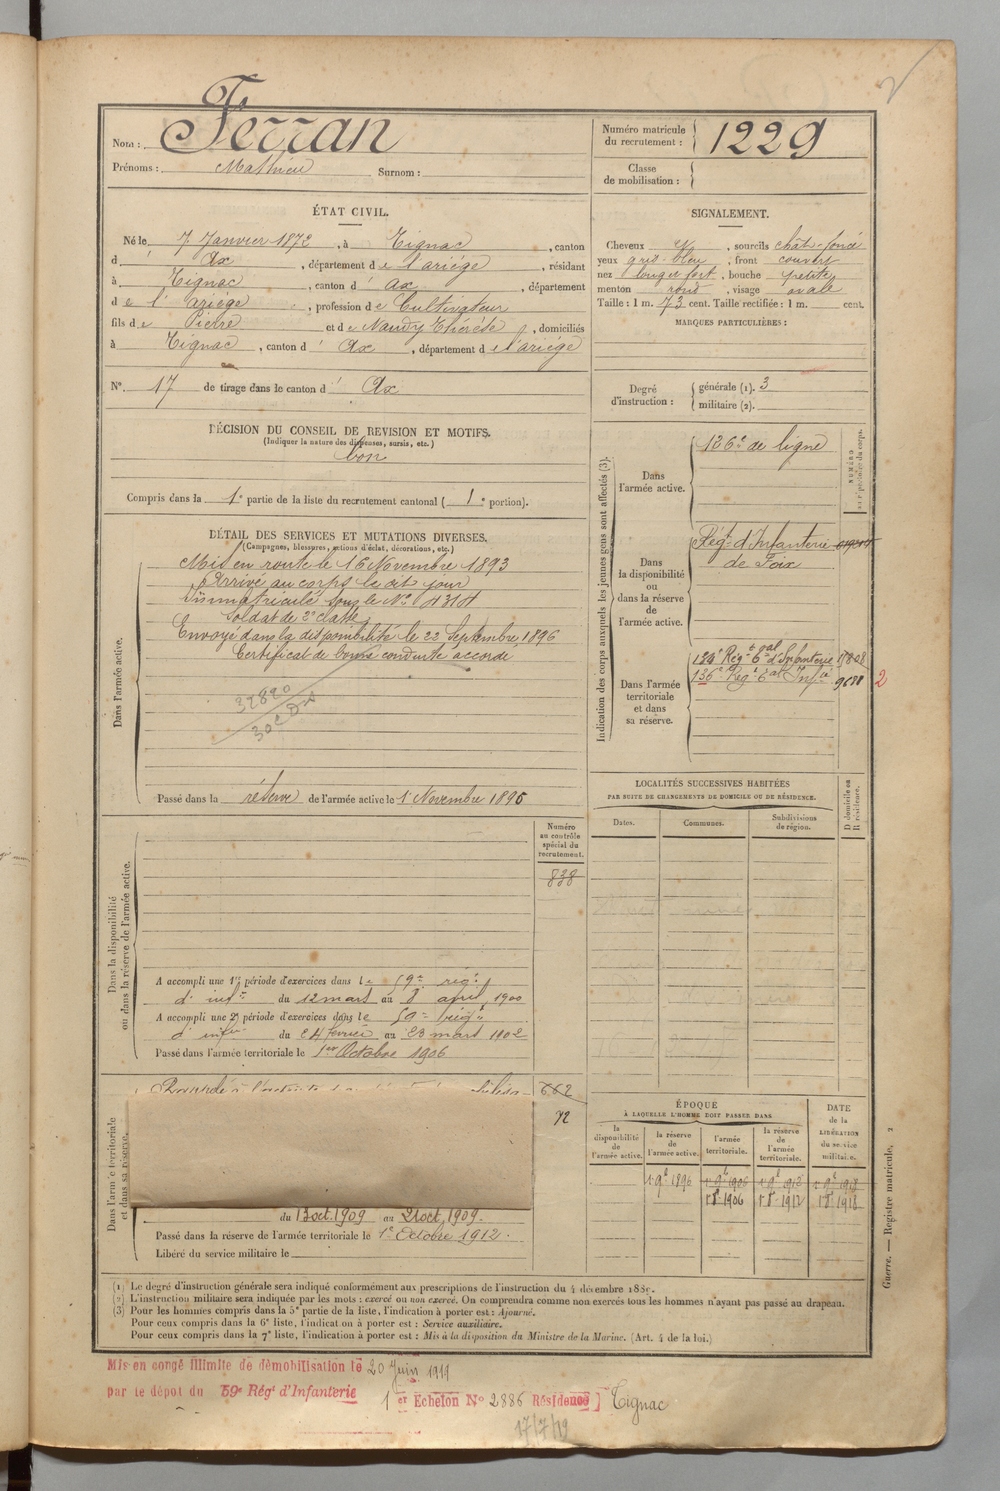 Nom : Ferran
Prénoms : Mathieu Surnom :
Numéro matricule du recrutement : 1229
Classe de mobilisation :
ÉTAT CIVIL.
Né le 7 Janvier 1872, à Tignac, canton
d' Ax, département de l'ariège, résidant
à Tignac, canton d' ax, département
de l'ariège, profession de Cultivateur
fils de Pierre et de Naudy Thérèse, domiciliés
à Tignac, canton d' Ax, département de l'ariège
N° 17 de tirage dans le canton d' Ax
SIGNALEMENT.
Cheveux , sourcils chât-foncé
yeux gris-bleu, front couvert
nez long et fort, bouche petite
menton rond, visage ovale
Taille : 1 m. 73 cent. Taille rectifiée : 1 m. cent.
MARQUES PARTICULIÈRES :
Degré d'instruction :
générale (1). 3
militaire (2).
DÉCISION DU CONSEIL DE REVISION ET MOTIFS.
(Indiquer la nature des dispenses, sursis, etc.)
bon
Compris dans la 1e partie de la liste du recrutement cantonal ( 1e portion).
DÉTAIL DES SERVICES ET MUTATIONS DIVERSES.
(Campagnes, blessures, actions d'éclat, décorations, etc.)
Dans l'armée active.
Mis en route le 16 Novembre 1893
Arrivé au corps le dit jour
Immatriculé sous le N° 4314
Soldat de 2e classe
Envoyé dans la disponibilité le 22 Septembre 1896
Certificat de bonne conduite accordé
Passé dans la réserve de l'armée active le 1 Novembre 1896
Indication des corps auxquels les jeunes gens sont affectés (3).
Dans l'armée active.
126e de ligne
Dans la disponibilité ou dans la réserve de l'armée active.
Régt d'Infanterie
de Foix
Dans l'armée territoriale et dans sa réserve.
Régt tal d'Infanterie
136e Régt tal Infie
2
LOCALITÉS SUCCESSIVES HABITÉES
PAR SUITE DE CHANGEMENTS DE DOMICILE OU DE RÉSIDENCE.
Dates. Communes. Subdivisions de région.
D domicile ou R résidence.
Dans la disponibilité ou dans la réserve de l'armée active.
Numéro au contrôle spécial du recrutement.
838
A accompli une 1re période d'exercices dans le 59e régt
d'infie du 12 mars au 8 avril 1900
A accompli une 2e période d'exercices dans le 59e régt
d'infie du 24 février au 23 mars 1902
Passé dans l'armée territoriale le 1er Octobre 1906
Dans l'armée territoriale et dans sa réserve.
662
72
du 13 oct. 1909 au 21 oct. 1909.
Passé dans la réserve de l'armée territoriale le 1er Octobre 1912.
Libéré du service militaire le
ÉPOQUE
À LAQUELLE L'HOMME DOIT PASSER DANS
la disponibilité de l'armée active.
la réserve de l'armée active.
l'armée territoriale.
la réserve de l'armée territoriale.
DATE de la LIBÉRATION du service militaire.
1 9b 1896 1 9b 1906 1 9b 1912 1 9b 1918
1 8b 1906 1 8b 1912 1 8b 1918
Guerre. — Registre matricule. 2
(1) Le degré d'instruction générale sera indiqué conformément aux prescriptions de l'instruction du 4 décembre 1889.
(2) L'instruction militaire sera indiquée par les mots : exercé ou non exercé. On comprendra comme non exercés tous les hommes n'ayant pas passé au drapeau.
(3) Pour les hommes compris dans la 5e partie de la liste, l'indication à porter est : Ajourné.
Pour ceux compris dans la 6e liste, l'indication à porter est : Service auxiliaire.
Pour ceux compris dans la 7e liste, l'indication à porter est : Mis à la disposition du Ministre de la Marine. (Art. 4 de la loi.)
Mis en congé illimité de démobilisation le 20 Juin 1919
par le dépôt du 59e Régt d'Infanterie
1er Echelon N° 2886 Résidence] Tignac
17/7/19